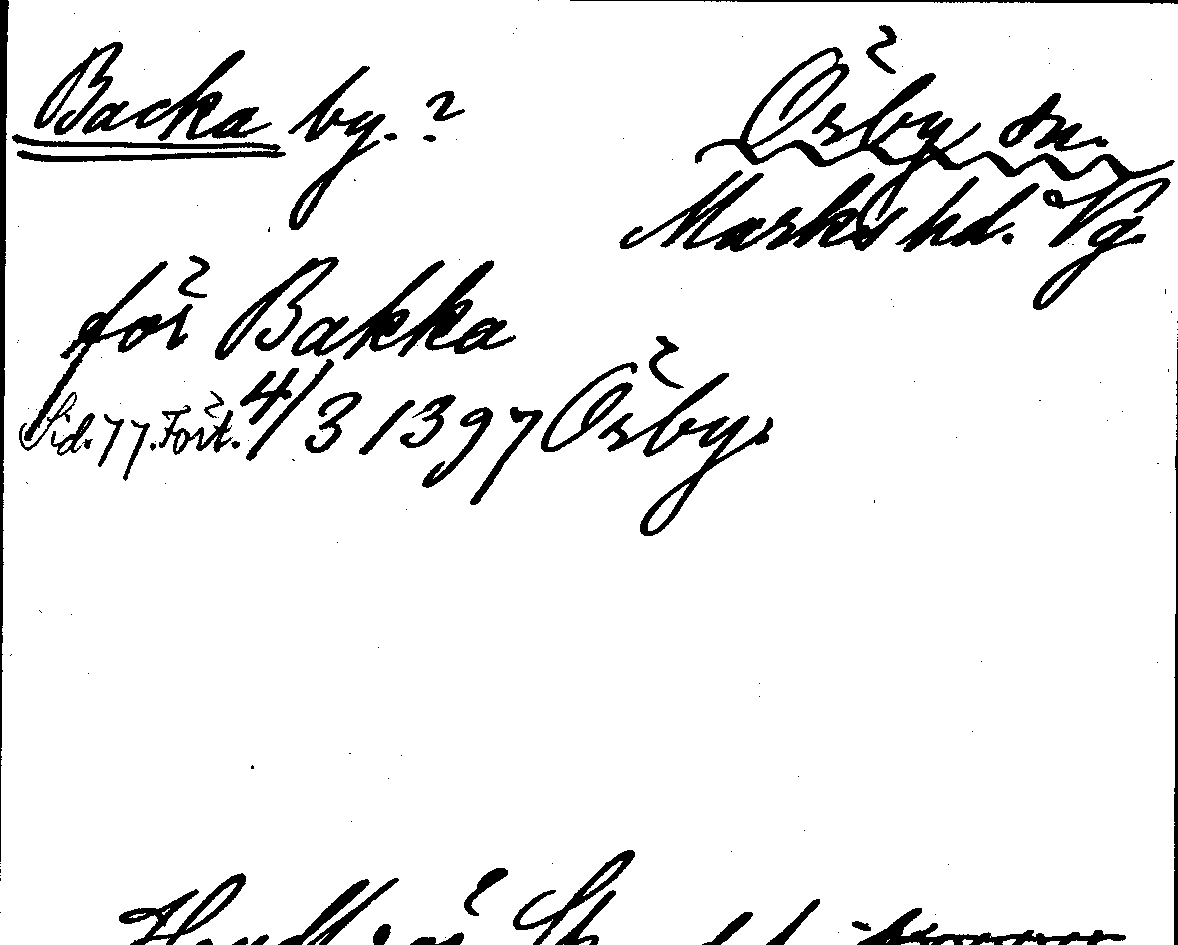 Backa by. ?
Örby sn.
Marks hd. Vg.
för Bakka
Sid. 77. Fört. 4/3 1397 Örby.